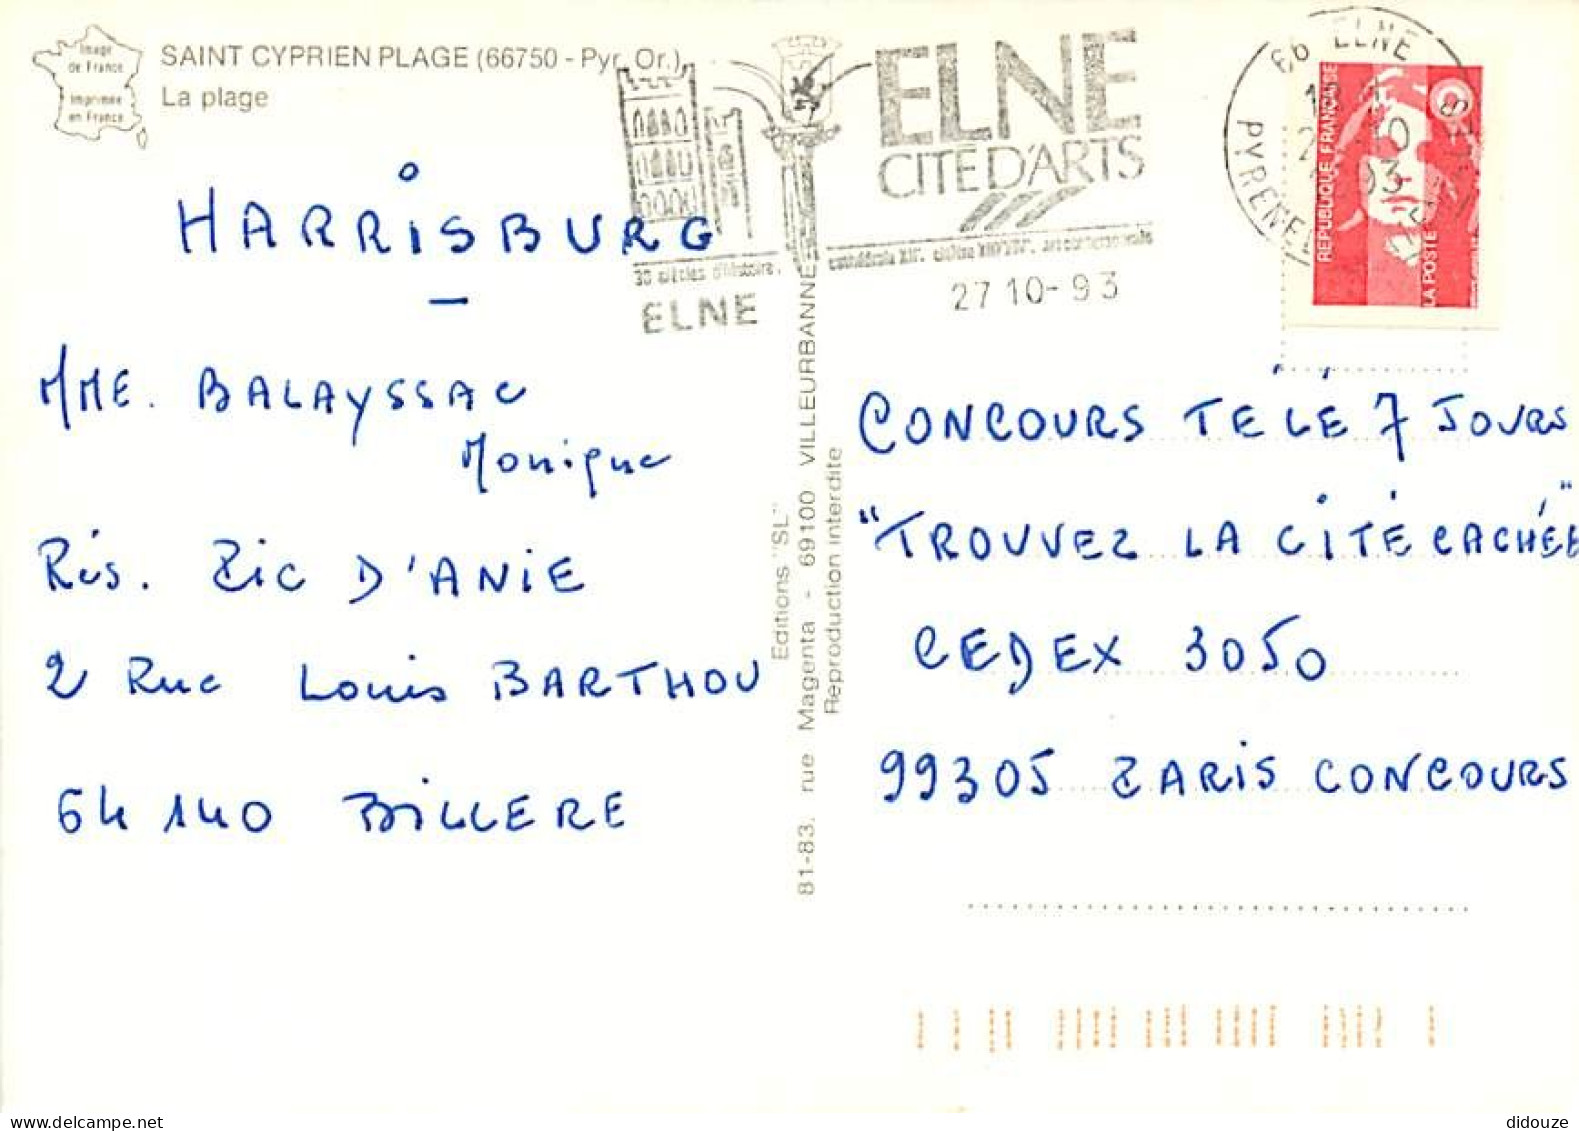 Image
de France
Imprimée
en France
SAINT CYPRIEN PLAGE (66750 - Pyr. Or.)
La plage
HARRISBURG
MME. BALAYSSAC
Monique
Rés. Pic D'ANIE
2 Rue Louis BARTHOU
64140 BILLERE
30 siècles d'histoire.
ELNE
ELNE
CITÉ D'ARTS
27 10-93
66 ELNE
PYRENEES
REPUBLIQUE FRANÇAISE
LA POSTE
Editions "SL"
81-83. rue Magenta - 69100 VILLEURBANNE
Reproduction interdite
CONCOURS TELE 7 JOURS
"TROUVEZ LA CITÉ CACHÉE"
CEDEX 3050
99305 PARIS CONCOURS
didouze